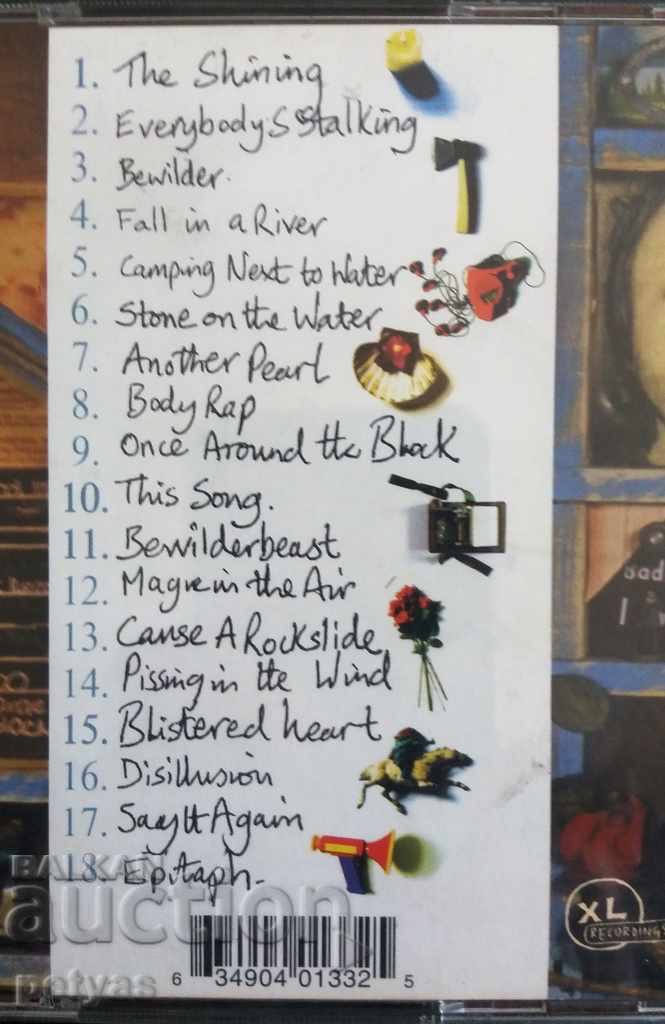 1. The Shining
2. Everybody's Stalking
3. Bewilder.
4. Fall in a River
5. Camping Next to Water
6. Stone on the Water
7. Another Pearl
8. Body Rap
9. Once Around the Block
10. This Song.
11. Bewilderbeast
12. Magic in the Air
13. Cause A Rockslide
14. Pissing in the Wind
15. Blistered heart
16. Disillusion
17. Say It Again
18. Epitaph.
BALKAN
auction
petyas
6 34904 01332 5
XL
RECORDINGS